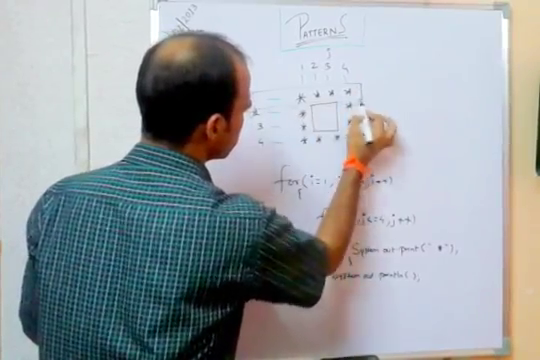 PATTERNS
j
1 2 3 4
* * * *
2 *
3 *
4 * * *
for(i=1, i++)
j<=4, j++)
System.out.print(" *");
System.out.println();